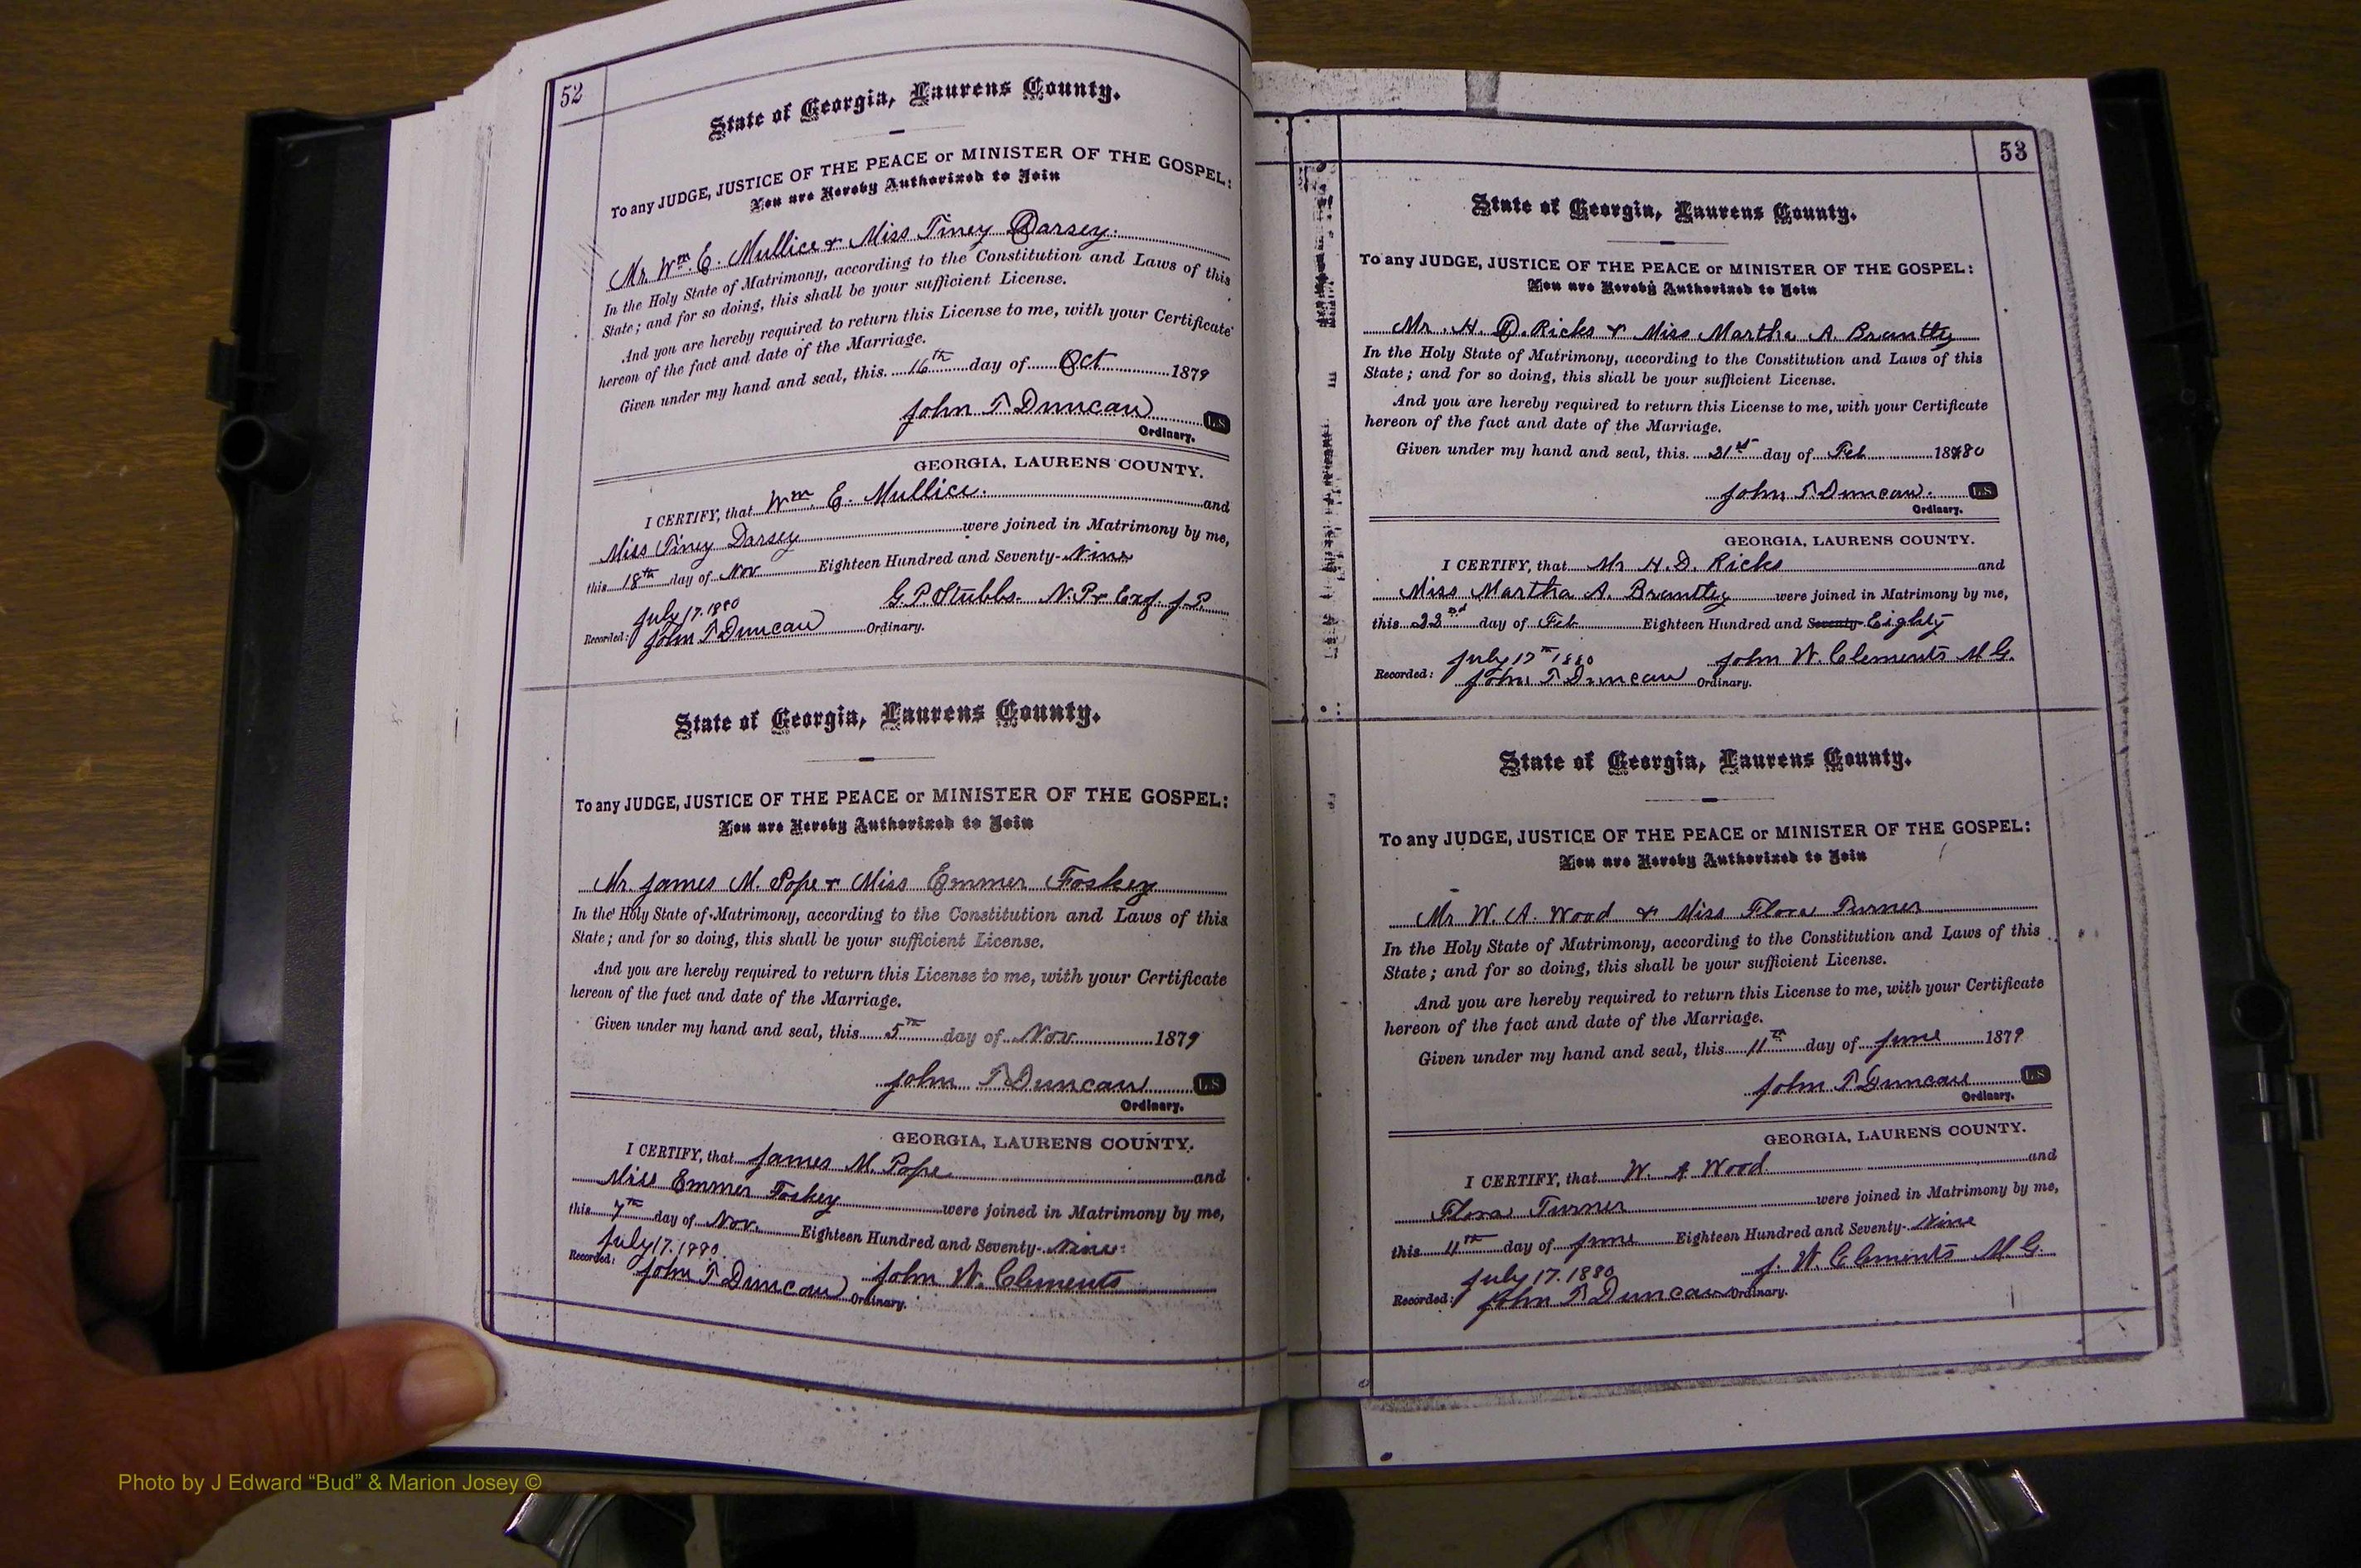 52
State of Georgia, Laurens County.
To any JUDGE, JUSTICE OF THE PEACE or MINISTER OF THE GOSPEL:
You are Hereby Authorized to Join
Mr. Wm. E. Mullice & Miss Tiney Darsey.
In the Holy State of Matrimony, according to the Constitution and Laws of this
State; and for so doing, this shall be your sufficient License.
And you are hereby required to return this License to me, with your Certificate
hereon of the fact and date of the Marriage.
Given under my hand and seal, this 16th day of Oct 1879
John T Duncan LS
Ordinary.
GEORGIA, LAURENS COUNTY.
I CERTIFY, that Wm. E. Mullice. and
Miss Tiney Darsey were joined in Matrimony by me,
this 18th day of Nov Eighteen Hundred and Seventy-Nine
July 17. 1880 G. P. Stubbs. N. P. & Exof. J. P.
Recorded: John T Duncan Ordinary.
State of Georgia, Laurens County.
To any JUDGE, JUSTICE OF THE PEACE or MINISTER OF THE GOSPEL:
You are Hereby Authorized to Join
Mr. James M. Pope & Miss Emmer Foskey
In the Holy State of Matrimony, according to the Constitution and Laws of this
State; and for so doing, this shall be your sufficient License.
And you are hereby required to return this License to me, with your Certificate
hereon of the fact and date of the Marriage.
Given under my hand and seal, this 5th day of Nov. 1879
John T Duncan LS
Ordinary.
GEORGIA, LAURENS COUNTY.
I CERTIFY, that James M. Pope and
Miss Emmer Foskey were joined in Matrimony by me,
this 7th day of Nov. Eighteen Hundred and Seventy-Nine
July 17. 1880. John W. Clements
Recorded: John T Duncan Ordinary.
53
State of Georgia, Laurens County.
To any JUDGE, JUSTICE OF THE PEACE or MINISTER OF THE GOSPEL:
You are Hereby Authorized to Join
Mr. H. D. Ricks & Miss Martha A. Brantley
In the Holy State of Matrimony, according to the Constitution and Laws of this
State; and for so doing, this shall be your sufficient License.
And you are hereby required to return this License to me, with your Certificate
hereon of the fact and date of the Marriage.
Given under my hand and seal, this 21st day of Feb 1880
John T Duncan. LS
Ordinary.
GEORGIA, LAURENS COUNTY.
I CERTIFY, that Mr H. D. Ricks and
Miss Martha A. Brantley were joined in Matrimony by me,
this 22nd day of Feb Eighteen Hundred and Seventy- Eighty
July 17th 1880 John W. Clements M. G.
Recorded: John T Duncan Ordinary.
State of Georgia, Laurens County.
To any JUDGE, JUSTICE OF THE PEACE or MINISTER OF THE GOSPEL:
You are Hereby Authorized to Join
Mr W. A. Wood & Miss Flora Turner
In the Holy State of Matrimony, according to the Constitution and Laws of this
State; and for so doing, this shall be your sufficient License.
And you are hereby required to return this License to me, with your Certificate
hereon of the fact and date of the Marriage.
Given under my hand and seal, this 11th day of June 1879
John T Duncan LS
Ordinary.
GEORGIA, LAURENS COUNTY.
I CERTIFY, that W. A Wood and
Flora Turner were joined in Matrimony by me,
this 11th day of June Eighteen Hundred and Seventy-Nine
July 17. 1880 J. W. Clements M. G.
Recorded: John T Duncan Ordinary.
Photo by J Edward “Bud” & Marion Josey ©